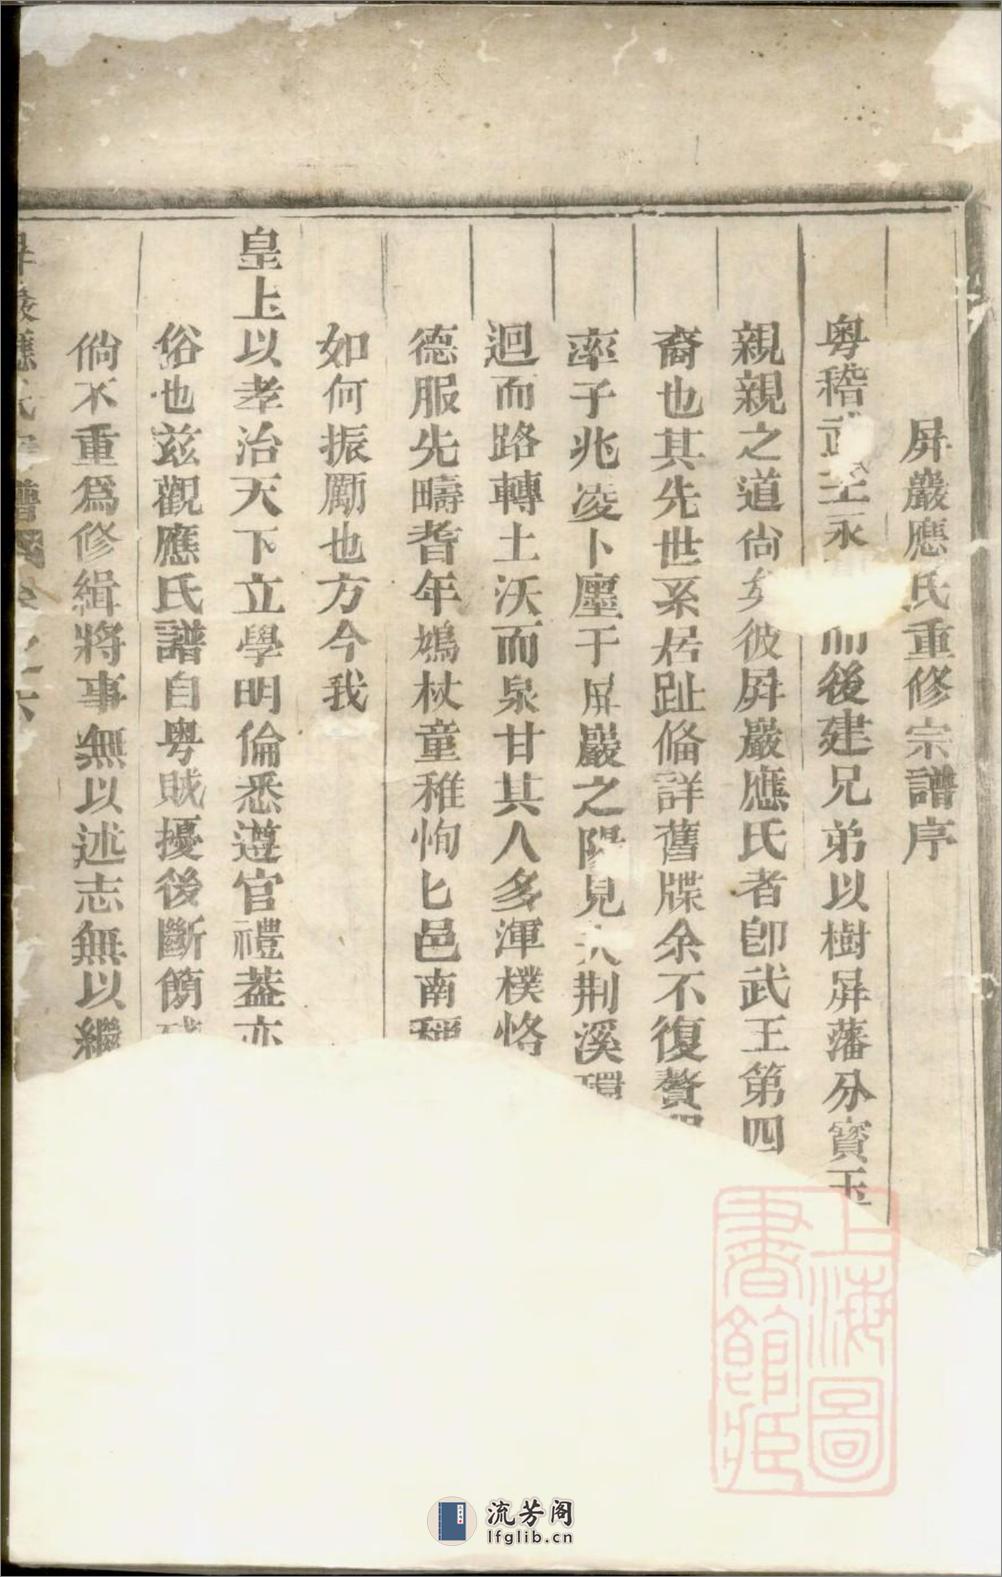 屏巖應氏重修宗譜序
粵稽武王 而後建兄弟以樹屏藩分寳玉
親親之道尙矣彼屏巖應氏者卽武王第四
裔也其先世系居趾俻詳舊牒余不復贅
率子兆凌卜廛于屏巖之陽見 荆溪環
迴而路轉土沃而泉甘其人多渾樸恪
德服先疇耆年鳩杖童稚恂匕邑南稱
如何振勵也方今我
皇上以孝治天下立學明倫悉遵官禮葢亦
俗也兹觀應氏譜自粤賊擾後斷簡
倘不重爲修緝將事無以述志無以繼
屏巖應氏 譜
上海圖書館藏
流芳阁
lfglib.cn